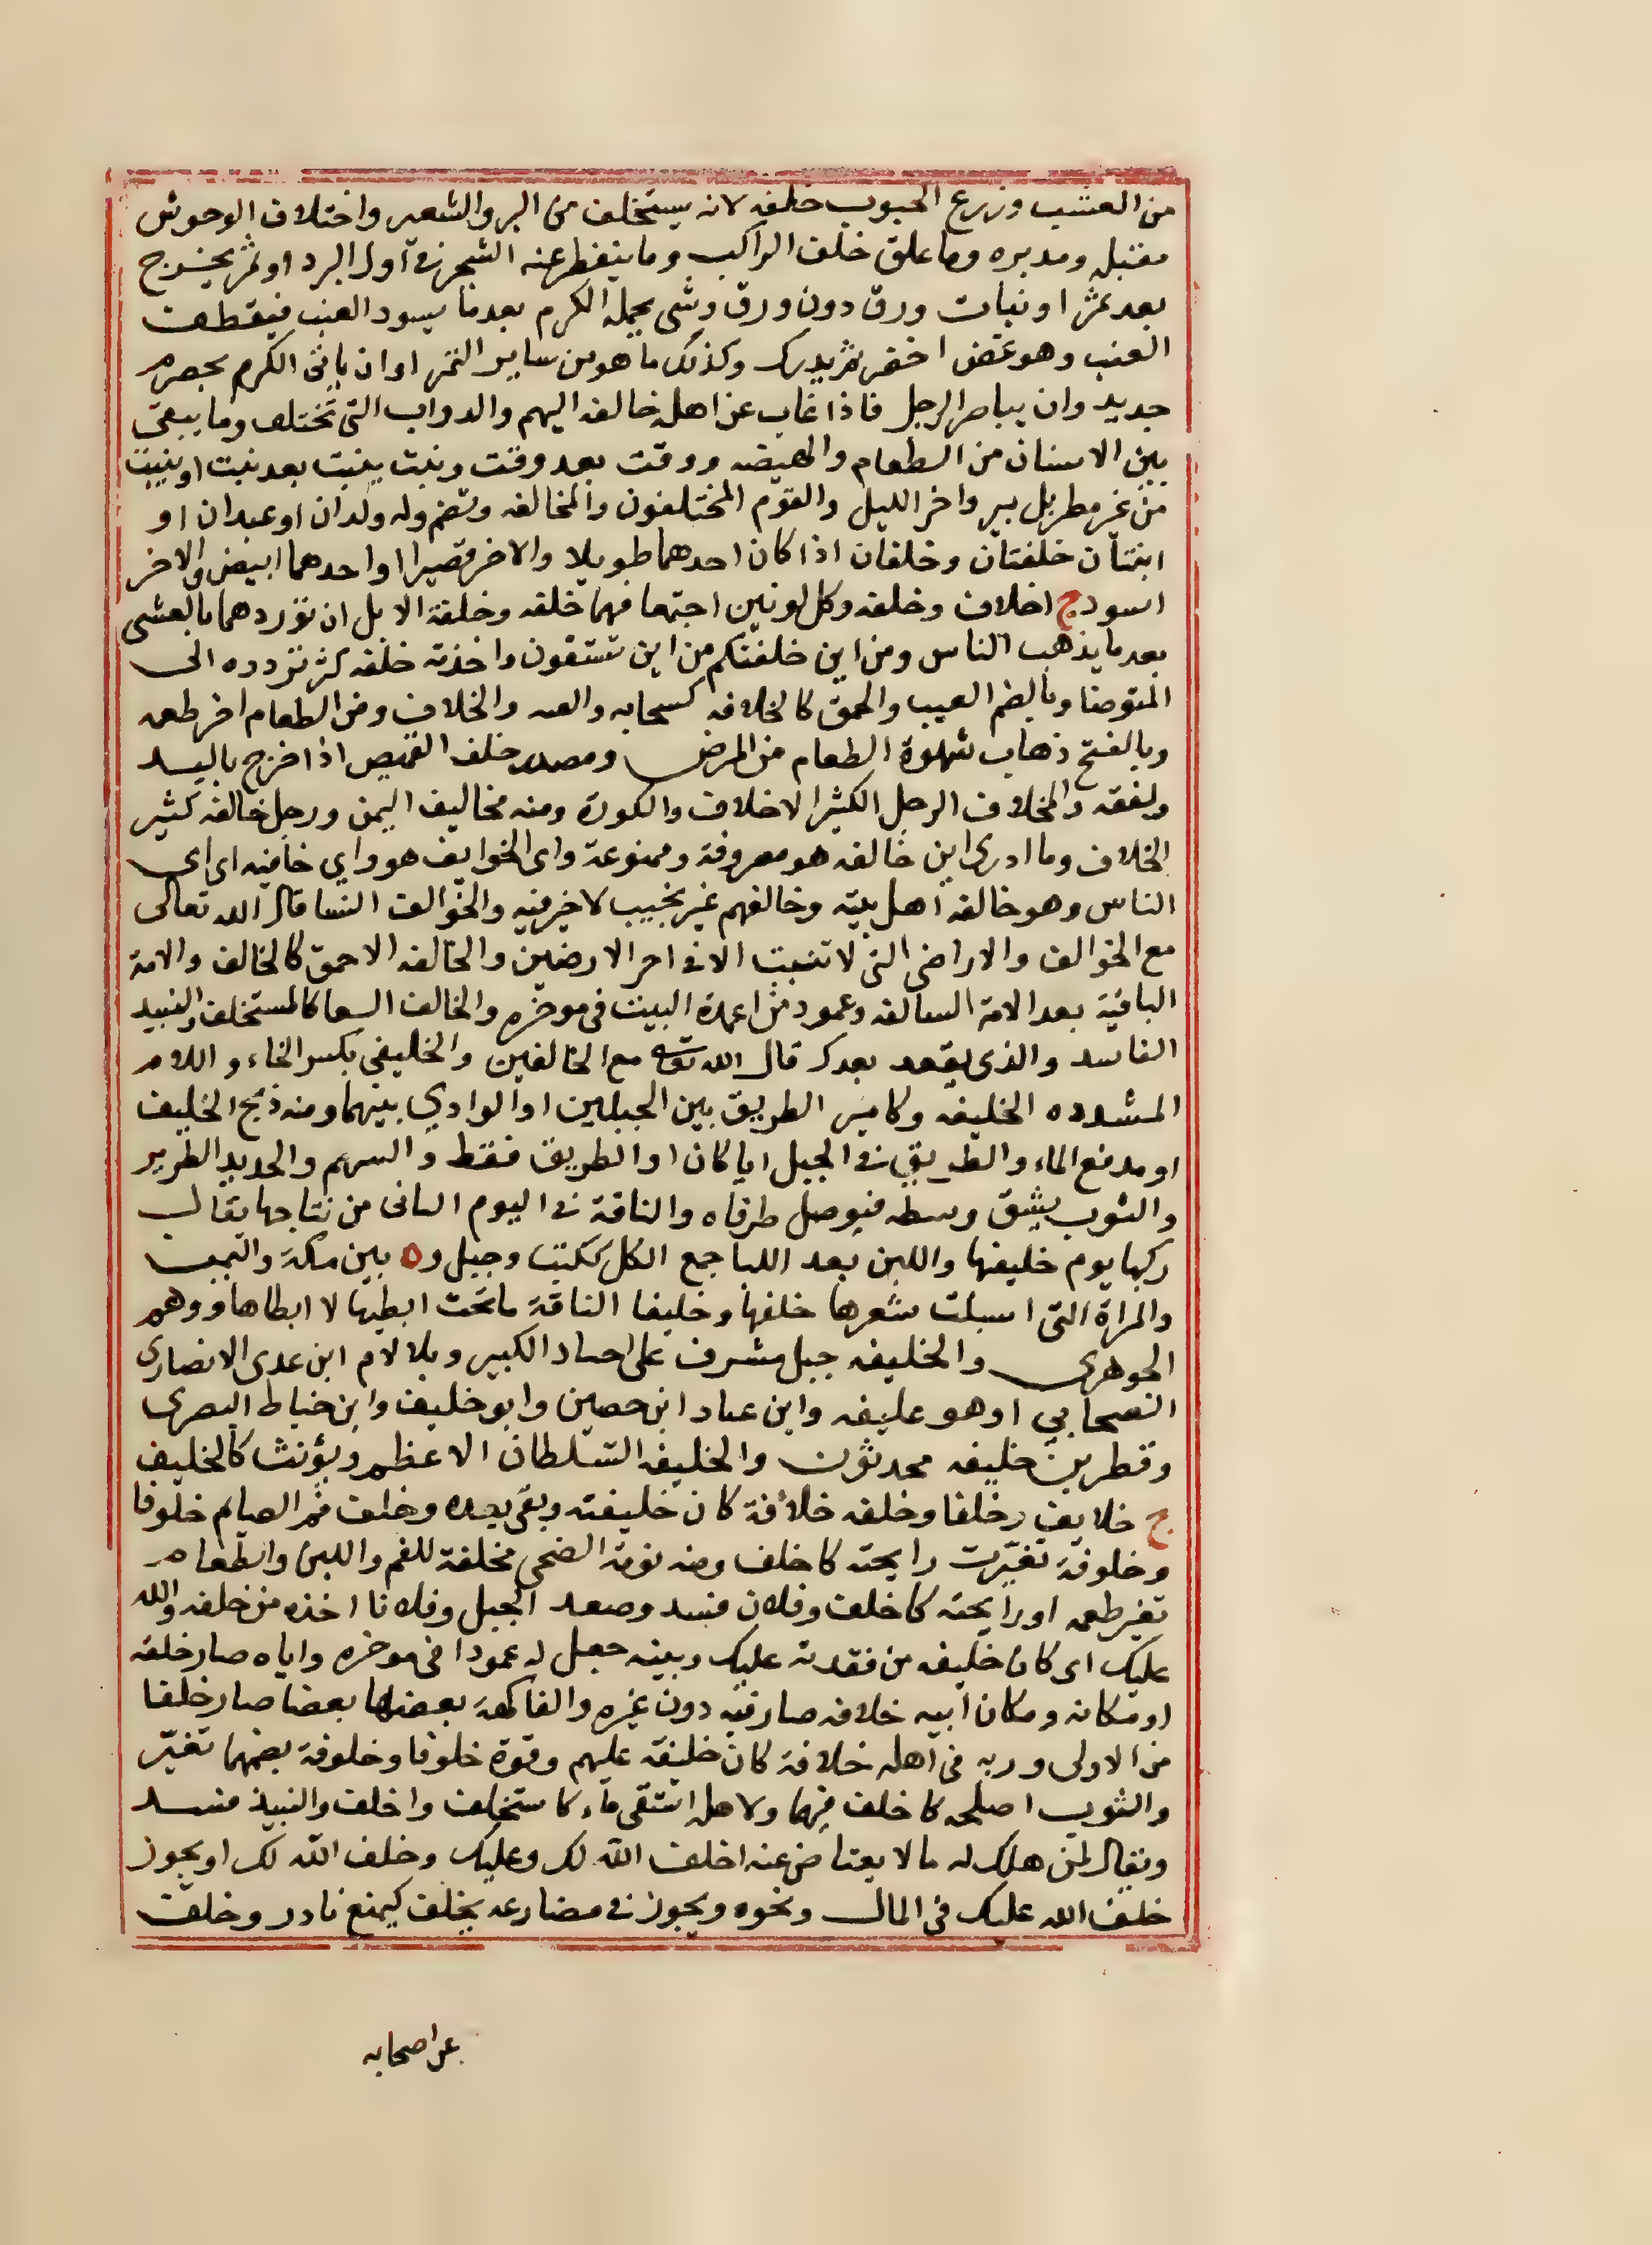 من العشب وزرع الحبوب خلفه لانه يستخلف من البر والشعير واختلاف الوحوش
مقبله ومدبره وما علق خلف الراكب وما ينفطر عنه الشجر في اول البرد او ثمر يخرج
بعد ثمر او نبات ورق دون ورق وشى يحمله الكرم بعد ما يسود العنب فيقطف
العنب وهو غض اخضر ثم يدرك وكذلك ما هو من ساير الثمر او ان ياتي الكرم بحصرم
جديد وان يباصر الرجل فاذا غاب عن اهله خالفه اليهم والدواب التي تختلف وما يبقى
بين الاسنان من الطعام والهيضه ووقت بعد وقت ونبت ينبت بعد نبت او ينبت
من غير مطر بل ببر واخر الليل والقوم المختلفون والمخالفه وتضم وله ولدان او عبدان او
ابنتان خلفتان وخلفان اذا كان احدهما طويلا والاخر قصيرا او احدهما ابيض والاخر
اسود ج اخلاف وخلفه وكل لونين اجتمعا فهما خلفه وخلفة الابل ان توردهما بالعشى
بعد ما يذهب الناس ومن اين خلفتكم من اين تستقون واخذته خلفه كثر تردده الى
المتوضا وبالضم العيب والحمق كالخلافه كسحابه والعته والخلاف ومن الطعام اخر طعمه
وبالفتح ذهاب شهوة الطعام من المرض ومصدر خلف القميص اذا اخرج باليه
ولفقه والمخلاف الرجل الكثير الاخلاف والكورة ومنه مخاليف اليمن ورجل خالفه كثير
الخلاف وما ادرى اين خالفه هو مصروفة وممنوعة واى الخوالف هو واي خافيه اى اى
الناس وهو خالفه اهل بيته وخالفهم غير نجيب لا خير فيه والخوالف النسا قال الله تعالى
مع الخوالف والاراضى التي لا تنبت الا في اخر الارضين والخالفه الاحمق كالخالف والامة
الباقية بعد الامة السالفه وعمود من اعمدة البيت في موخره والخالف السقا كالمستخلف والنبيد
الفاسد والذى يقعد بعدك قال الله تعالى مع الخالفين والخليفى بكسر الخاء واللام
المشدده الخليفه وكامير الطريق بين الجبلين او الوادي بينهما ومنه ذيخ الخليف
او مدفع الماء والطريق في الجبل ايا كان او الطريق فقط والسهم والحديد الطرير
والثوب يشق وسطه فيوصل طرفاه والناقة في اليوم الثانى من نتاجها يقال
ركبها يوم خليفها واللبن بعد اللبا جمع الكل ككتب وجبل وه بين مكة واليمن
والمراة التي اسبلت شعرها خلفها وخليفا الناقة ما تحت ابطيها لا ابطاها ووهم
الجوهرى والخليفه جبل مشرف على اجياد الكبير وبلا لام ابن عدى الانصارى
الصحابي او هو عليفه وابن عباد ابن حصين وابو خليفه وابن خياط البصرى
وفطر بن خليفه محدثون والخليفه السلطان الاعظم ويؤنث كالخليف
ج خلايف وخلفا وخلفه خلافة كان خليفته وبقى بعده وخلف فم الصايم خلوفا
وخلوفة تغيرت رايحته كاخلف ومنه نومة الضحى مخلفة للفم واللبن والطعام
تغير طعمه او رايحته كاخلف وفلان فسد وصعد الجبل وفلانا اخذه من خلفه والله
عليك اى كان خليفه من فقدته عليك وبيته جعل له عمودا في موخره واباه صار خلفه
او مكانه ومكان ابيه خلافه صار فيه دون غيره والفاكهة بعضها بعضا صار خلفا
من الاولى وربه في اهله خلافة كان خليفة عليهم وقوة خلوفا وخلوفة بضمهما تغير
والثوب اصلحه كاخلف فيهما ولاهله استقى ماء كاستخلف واخلف والنبيذ فسد
ويقال لمن هلك له ما لا يعتاض عنه اخلف الله لك وعليك وخلف الله لك او يجوز
خلف الله عليك في المال ونحوه ويجوز في مضارعه يخلف كيمنع نادر وخلف
عن اصحابه